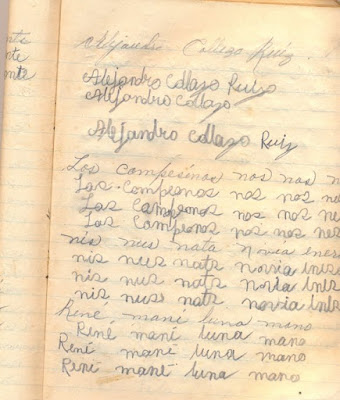 Alejandro Collazo Ruíz
Alejandro Collazo Ruiz
Alejandro Collazo
Alejandro Collazo Ruiz
Los campesinos nos nos
Las Campeonos nos nos nes
Las Campeonos nos nos nes
Las Campeonos nos nos nes
nis nues nata novia
nis nues nata novia
nis nus nata novia
nis nues nata novia
René mané luna mano
René mané luna mano
René mané luna mano
René mané luna mano